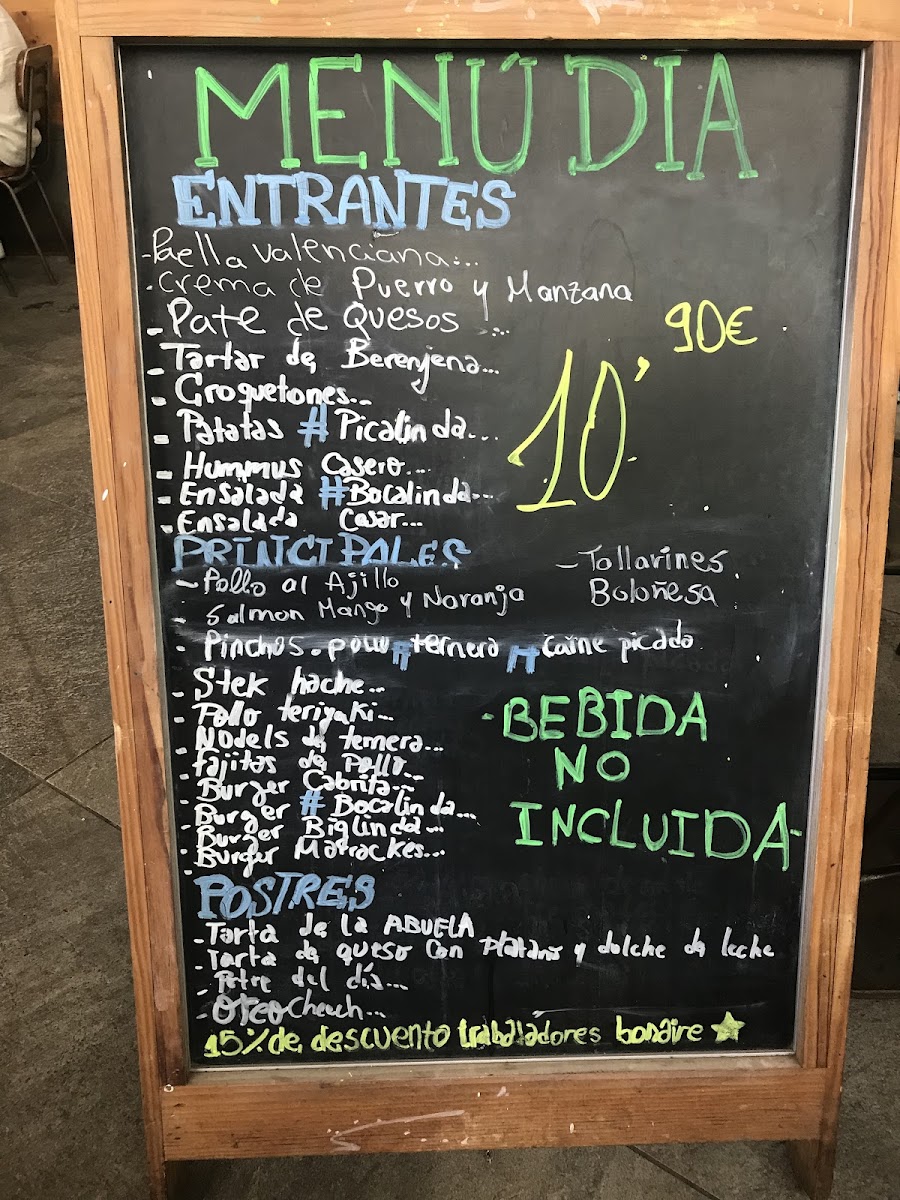 MENÚ DIA
ENTRANTES
-Paella valenciana...
-Crema de Puerro y Manzana
-Pate de Quesos ...
-Tartar de Berenjena...
-Croquetones...
-Patatas #Picalinda...
-Hummus Casero...
-Ensalada #Bocalinda...
-Ensalada Cesar...
10'90€
PRINCIPALES
-Pollo al Ajillo
-Salmon Mango y Naranja
-Tallarines
Boloñesa
-Pinchos.pollo #ternera #carne picada
-Stek hache...
-Pollo teriyaki...
-Nodels de ternera...
-fajitas de Pollo...
-Burger Cabrita...
-Burger #Bocalinda...
-Burger Biglinda...
-Burger Marrackes...
-BEBIDA
NO
INCLUIDA-
POSTRES
-Tarta de la ABUELA
-Tarta de queso con Platano y dolche de leche
-Potre del día...
-Oreo Cheach...
15% de descuento trabajadores bonaire